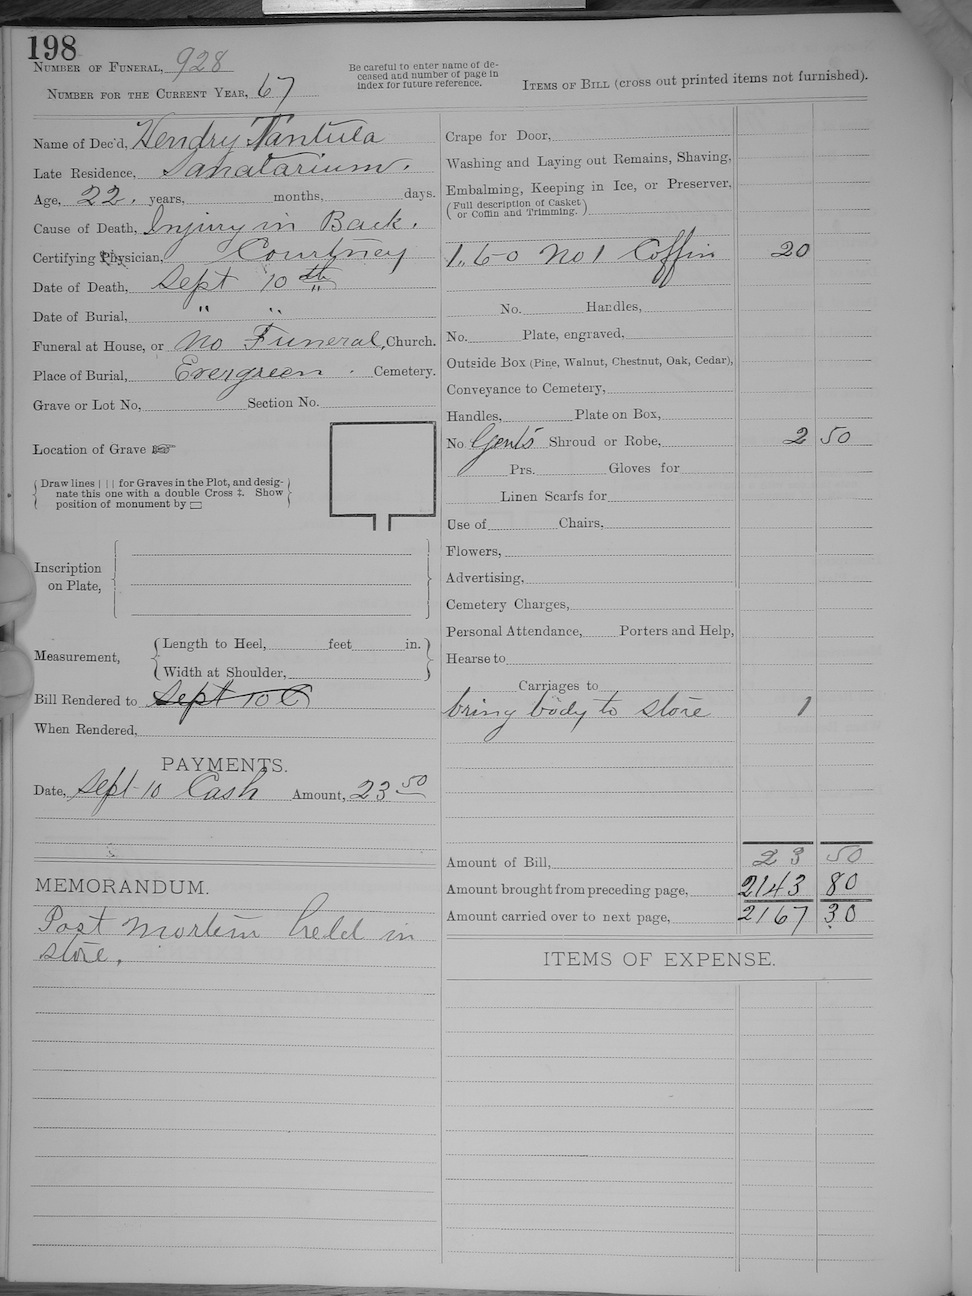 198
NUMBER OF FUNERAL, 928
NUMBER FOR THE CURRENT YEAR, 67
Be careful to enter name of de-
ceased and number of page in
index for future reference.
ITEMS OF BILL (cross out printed items not furnished).
Name of Dec'd, Hendry Tantula
Late Residence, Sanatarium.
Age, 22. years, months, days.
Cause of Death, Injury in Back.
Certifying Physician, Courtney
Date of Death, Sept 10th
Date of Burial, " "
Funeral at House, or No Funeral, Church.
Place of Burial, Evergreen. Cemetery.
Grave or Lot No, Section No.
Location of Grave ☞
Draw lines | | | for Graves in the Plot, and desig-
nate this one with a double Cross ‡. Show
position of monument by ▭
Inscription
on Plate,
Measurement,
Length to Heel, feet in.
Width at Shoulder,
Bill Rendered to Sept 10 C
When Rendered,
PAYMENTS.
Date, Sept 10 Cash Amount, 23 50
MEMORANDUM.
Post mortem held in
store.
Crape for Door,
Washing and Laying out Remains, Shaving,
Embalming, Keeping in Ice, or Preserver,
(Full description of Casket
or Coffin and Trimming.)
1. 6-0 No 1 Coffin 20
No. Handles,
No. Plate, engraved,
Outside Box (Pine, Walnut, Chestnut, Oak, Cedar),
Conveyance to Cemetery,
Handles, Plate on Box,
No. Gents Shroud or Robe, 2 50
Prs. Gloves for
Linen Scarfs for
Use of Chairs,
Flowers,
Advertising,
Cemetery Charges,
Personal Attendance, Porters and Help,
Hearse to
Carriages to
bring body to store 1
Amount of Bill, 23 50
Amount brought from preceding page, 2143 80
Amount carried over to next page, 2167 30
ITEMS OF EXPENSE.